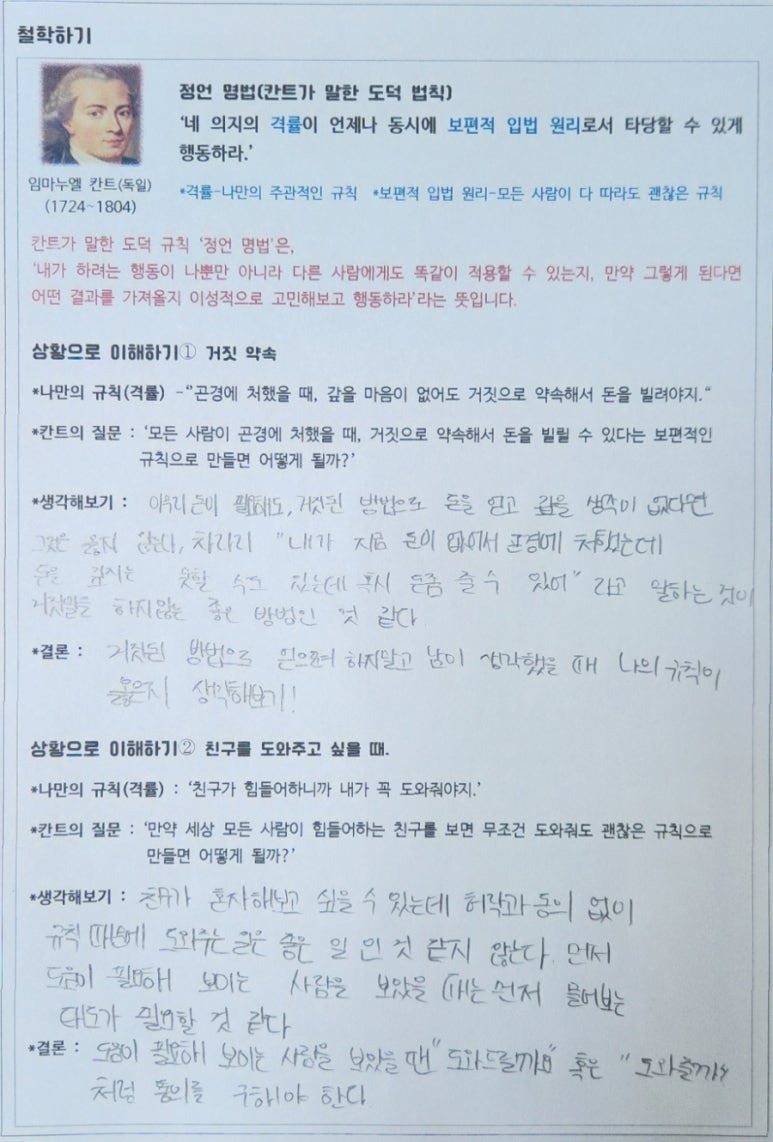 철학하기
정언 명법(칸트가 말한 도덕 법칙)
‘네 의지의 격률이 언제나 동시에 보편적 입법 원리로서 타당할 수 있게
행동하라.’
임마누엘 칸트(독일)
(1724~1804)
*격률-나만의 주관적인 규칙 *보편적 입법 원리-모든 사람이 다 따라도 괜찮은 규칙
칸트가 말한 도덕 규칙 ‘정언 명법’은,
‘내가 하려는 행동이 나뿐만 아니라 다른 사람에게도 똑같이 적용할 수 있는지, 만약 그렇게 된다면
어떤 결과를 가져올지 이성적으로 고민해보고 행동하라’라는 뜻입니다.
상황으로 이해하기① 거짓 약속
*나만의 규칙(격률) -“곤경에 처했을 때, 갚을 마음이 없어도 거짓으로 약속해서 돈을 빌려야지.“
*칸트의 질문 : ‘모든 사람이 곤경에 처했을 때, 거짓으로 약속해서 돈을 빌릴 수 있다는 보편적인
규칙으로 만들면 어떻게 될까?’
*생각해보기 : 아무리 돈이 필요해도, 거짓된 방법으로 돈을 얻고 갚을 생각이 없다면
그것은 옳지 않는다, 차라리 "내가 지금 돈이 없어서 곤경에 처했는데
돈을 갚지는 못할 수도 있는데 혹시 돈좀 줄 수 있어" 라고 말하는 것이
거짓말을 하지않는 좋은 방법인 것 같다.
*결론 : 거짓된 방법으로 얻으려 하지말고 남이 생각했을 때 나의 규칙이
옳은지 생각해보기!
상황으로 이해하기② 친구를 도와주고 싶을 때.
*나만의 규칙(격률) : ‘친구가 힘들어하니까 내가 꼭 도와줘야지.’
*칸트의 질문 : ‘만약 세상 모든 사람이 힘들어하는 친구를 보면 무조건 도와줘도 괜찮은 규칙으로
만들면 어떻게 될까?’
*생각해보기 : 친구가 혼자해보고 싶을 수 있는데 허락과 동의 없이
규칙 때문에 도와주는 일은 좋은 일 인 것 같지 않는다. 먼저
도움이 필요해 보이는 사람을 보았을 때는 먼저 물어보는
태도가 필요할 것 같다
*결론 : 도움이 필요해 보이는 사람을 보았을 땐 "도와드릴까요" 혹은 "도와줄까?"
처럼 동의를 구해야 한다.